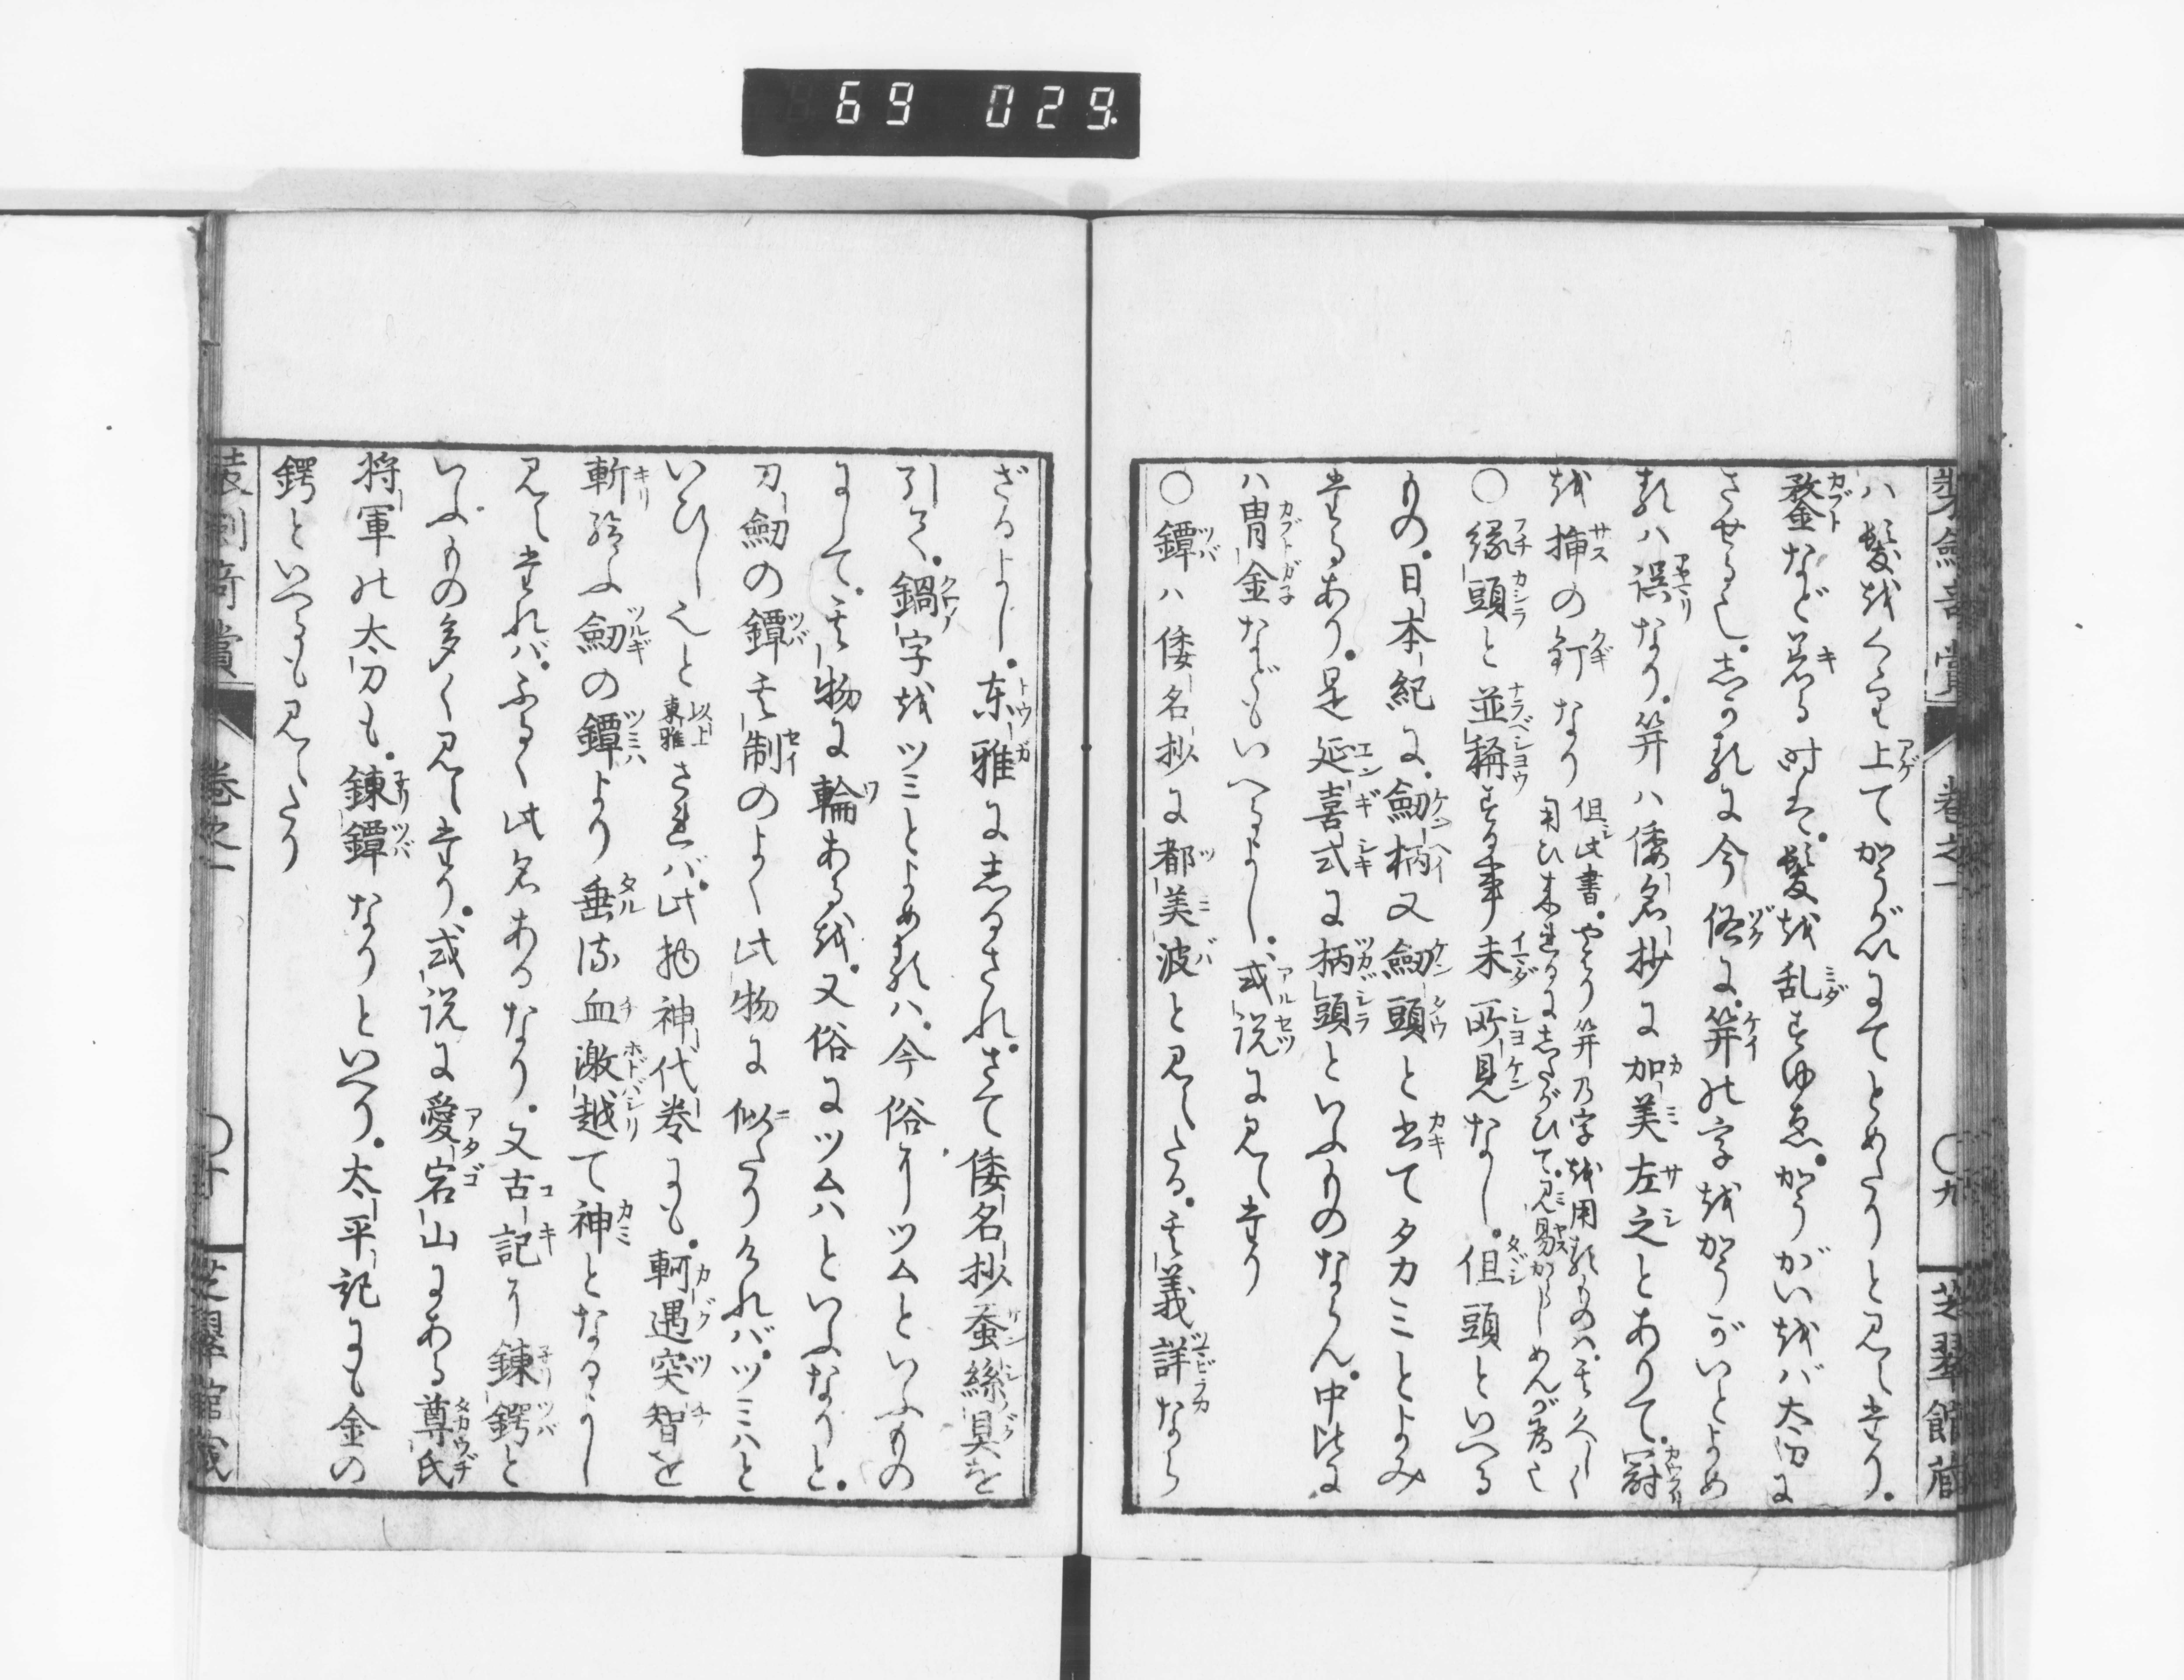 69 029
装劔奇賞 巻之一 ○九 芝翠館蔵
ハ髪越くゝり上てかうがいにてとめたりと見えたり。
鍪など着る時は。髪越乱すゆゑ。かうがい越バ太刀に
させるも。志かるに今俗に。笄の字越かうがいとよめ
るハ誤なり。笄ハ倭名抄に加美左之とありて。冠
越挿の釘なり 但此書。やはり笄乃字越用るものハ。其久しく
用ひ来れるに志たがひて。見易からしめんが為也
○縁頭と並稱する事未所見なし。但頭といへる
もの。日本紀に。劔柄又劔頭と書てタカミとよみ
たるあり。是延喜式に柄頭といふものならん。中比に
ハ冑金などもいへるよし。或説に見えたり
○鐔ハ倭名抄に都美波と見えたる。其義詳なら
ざるよし。東雅に志るされ。さて倭名抄蚕絲具を
引く。鍋字越ツミとよめるハ。今俗にツムといふもの
にして。其物に輪ある越。又俗にツムハといふなりと。
刀劔の鐔其制のよく此物に似たりけれバ。ツミハと
いひしこと 以上東雅 されバ。此物神代巻にも。軻遇突智を
斬給ふ劔の鐔より垂流血激越て神となるよし
見えたれバ。ふるく此名あるなり。又古記に錬鍔と
いふもの多く見えたり。或説に愛宕山にある尊氏
将軍の太刀も。錬鐔なりといへり。太平記にも金の
鍔といへるも見えたり
装劔奇賞 巻之一 ○十 芝翠館蔵